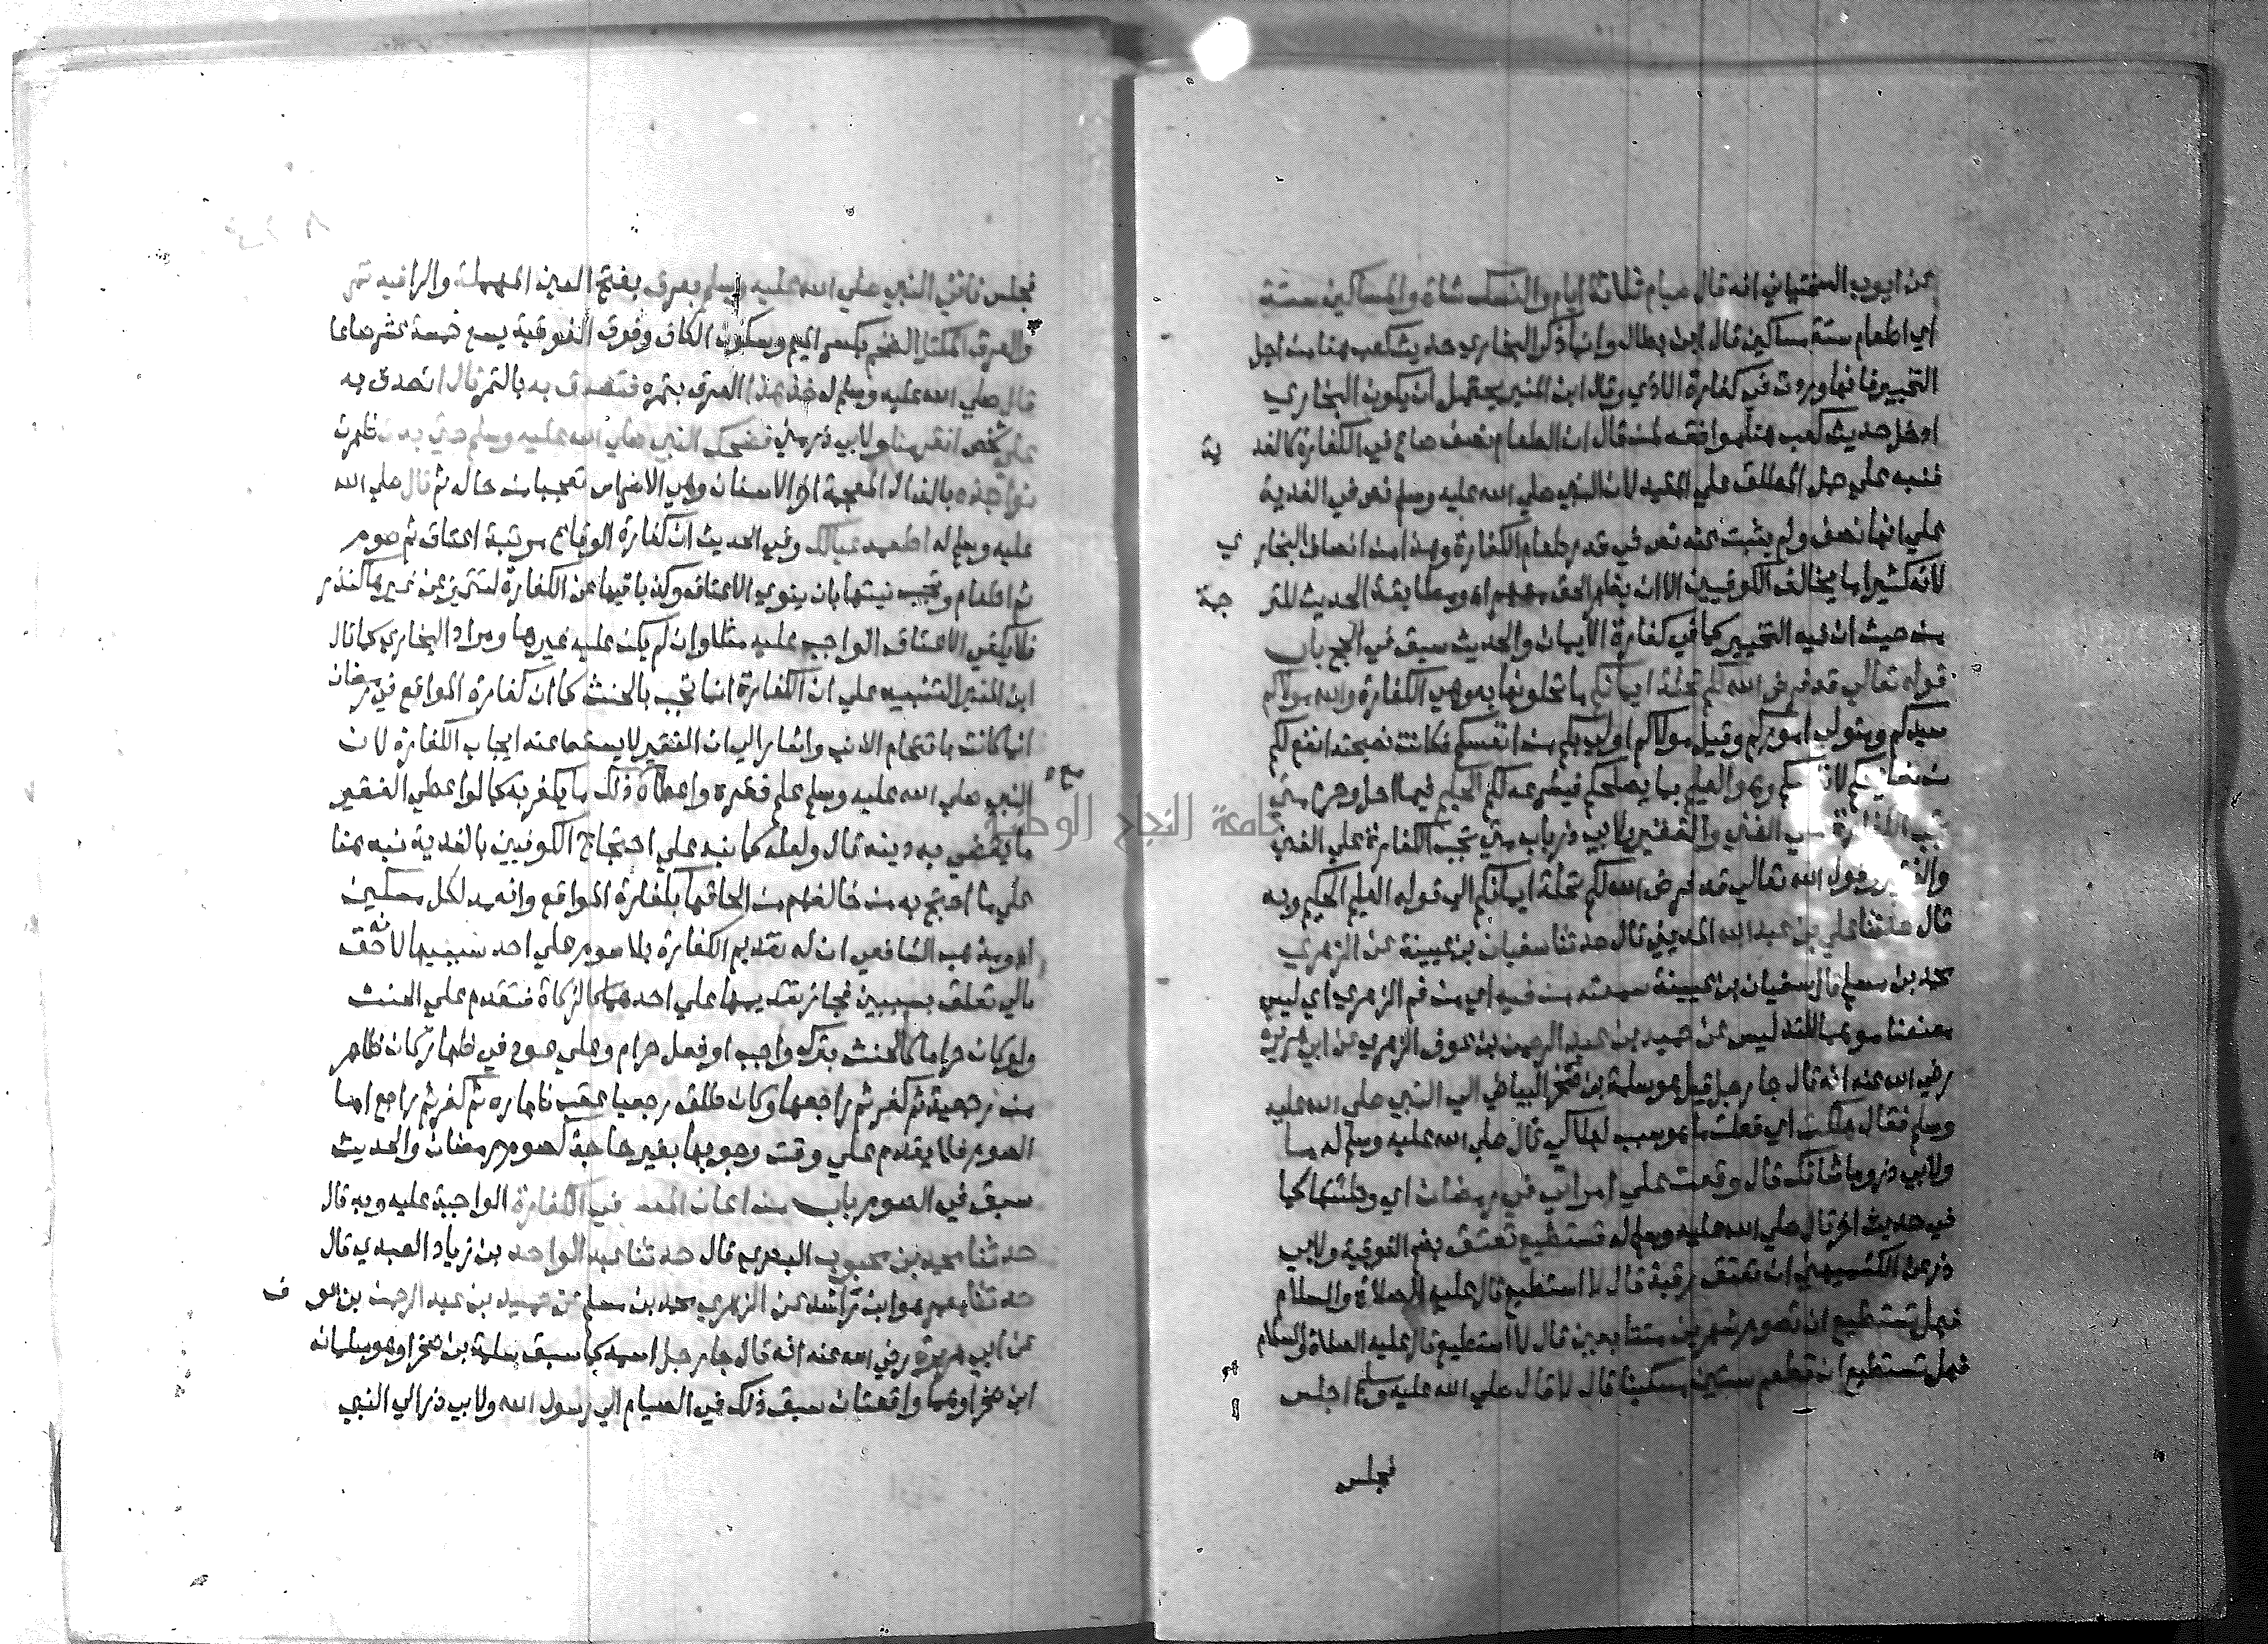 عن ايوب السختياني انه قال صيام ثلاثة ايام والنسك شاة والمساكين ستة
اي اطعام ستة مساكين قال ابن بطال وانما ذكر البخاري حديث كعب هنا من اجل
التخيير فانها وردت في كفارة الاذي وقال ابن المنير يحتمل ان يكون البخاري
ادخل حديث كعب هنا موافقه لمن قال ان الطعام نصف صاع في الكفارة كالفد ية
فنبه علي حمل المطلق علي المقيد لان النبي صلي الله عليه وسلم نص في الفدية
علي انها نصف ولم يثبت عنه نص في قدر طعام الكفارة وهذا من انصاف البخار ي
لانه كثيرا ما يخالف الكوفيين الا ان يظهر الحق معهم اه ومطابقة الحديث للتر جمة
من حيث ان فيه التخيير كما في كفارة الأيمان والحديث سبق في الحج باب
قوله تعالي قد فرض الله لكم تحلة ايمانكم ما تحلونها به وهي الكفارة والله مولاكم
سيدكم ومتولي اموركم وقيل مولاكم اولي بكم من انفسكم فكانت نصيحته انفع لكم
من نصايحكم لانفسكم وهو العليم بما يصلحكم فيشرعه لكم الحكيم فيما احل وحرم متي
تجب الكفارة علي الغني والفقير ولابي ذر باب متي تجب الكفارة علي الغني
والفقير وقول الله تعالي قد فرض الله لكم تحلة ايمانكم الي قوله العليم الحكيم وبه
قال حدثنا علي بن عبد الله المديني قال حدثنا سفيان بن عيينة عن الزهري
محمد بن مسلم قال سفيان بن عيينة سمعته من فيه اي من فم الزهري اي ليس
معنعنا موهما للتدليس عن حميد بن عبد الرحمن بن عوف الزهري عن ابي هريرة
رضي الله عنه انه قال جا رجل قيل هو سلمة بن صخر البياضي الي النبي صلي الله عليه
وسلم فقال هلكت اي فعلت ما هو سبب لهلاكي قال صلي الله عليه وسلم له ما
ولابي ذر وما شانك قال وقعت علي امراتي في رمضان اي وطئتها كما
في حديث اخر قال صلي الله عليه وسلم له تستطيع تعتق بضم الفوقية ولابي
ذر عن الكشميهني ان تعتق رقبة قال لا استطيع قال عليه الصلاة والسلام
فهل تستطيع ان تصوم شهرين متتابعين قال لا استطيع قال عليه الصلاة والسلام
فهل تستطيع ان تطعم ستين مسكينا قال لا قال صلي الله عليه وسلم اجلس
فجلس
فجلس فاتي النبي صلي الله عليه وسلم بعرق بفتح العين المهملة والرا فيه تمر
والعرق المكتل الضخم بكسر الميم وسكون الكاف وفوق الفوقية يسع خمسة عشر صاعا
قال صلي الله عليه وسلم له خذ هذا العرق بتمره فتصدق به بالتمر قال اتصدق به
علي شخص افقر منا ولابي ذر مني فضحك النبي صلي الله عليه وسلم حتي بدت ظهرت
نواجذه بالذال المعجمة اخر الاسنان وهي الاضراس تعجبا من حاله ثم قال صلي الله
عليه وسلم له اطعمه عيالك وفي الحديث ان كفارة الوقاع مرتبة اعتاق ثم صوم
ثم اطعام وتجب نيتها بان ينوي الاعتاق وكذا باقيها عن الكفارة لتتميز عن غيرها كنذر
فلا يكفي الاعتاق الواجب عليه مثلا وان لم يكن عليه غيرها ومراد البخاري كما قال
ابن المنير التنبيه علي ان الكفارة انما تجب بالحنث كما ان كفارة المواقع في رمضان
انما كانت باقتحام الذنب واشار الي ان الفقير لا يسقط عنه ايجاب الكفارة لان
النبي صلي الله عليه وسلم علم فقره واعطاه ذلك ما يكفر به كما لو اعطي الفقير
ما يقضي به دينه قال ولعله كما نبه علي احتجاج الكوفيين بالفدية نبه هنا
علي ما احتج به من خالفهم من الحاقها بكفارة المواقع وانه مد لكل مسكين
اه ومذهب الشافعي ان له تقديم الكفارة بلا صوم علي احد سببيها لانه حق
مالي تعلق بسببين فجاز تقديمها علي احدهما كالزكاة فتقدم علي الحنث
ولو كان حراما كالحنث بترك واجب او فعل حرام وعلي عود في ظهار كان ظاهر
من رجعية ثم كفر ثم راجعها وكان طلق رجعيا عقب ظهاره ثم كفر ثم راجع اما
الصوم فلا يقدم علي وقت وجوبها بغير حاجة كصوم رمضان والحديث
سبق في الصوم باب من اعان المعسر في الكفارة الواجبة عليه وبه قال
حدثنا محمد بن محبوب البصري قال حدثنا عبد الواحد بن زياد العبدي قال
حدثنا معمر هو ابن راشد عن الزهري محمد بن مسلم عن حميد بن عبد الرحمن بن عو ف
عن ابي هريرة رضي الله عنه انه قال جا رجل اسمه كما سبق سلمة بن صخر او هو سلمان
ابن صخر او هما واقعتان سبق ذلك في الصيام الي رسول الله ولابي ذر الي النبي
جامعة النجاح الوطنية